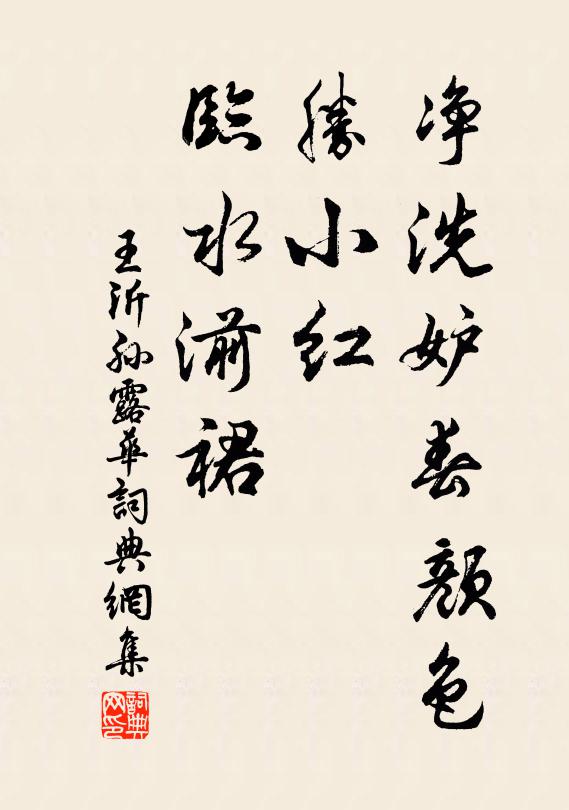 净洗妒春颜色
勝小红
臨水湔裙
王沂孙露華詞典網集
詞典网印